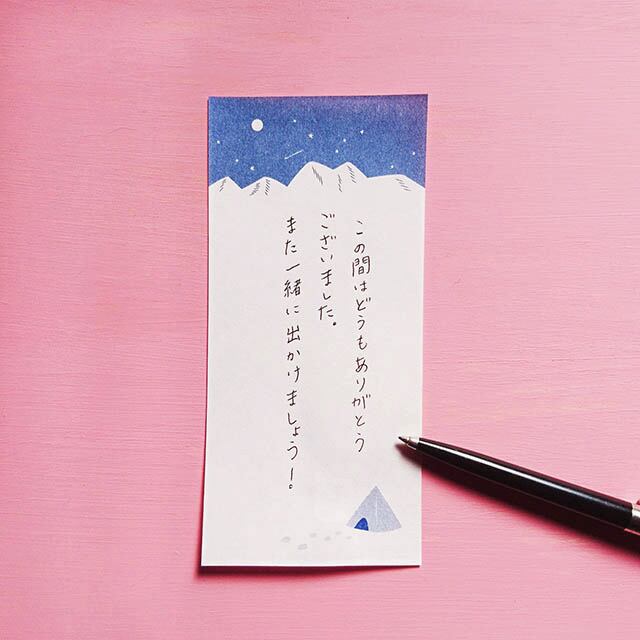 この間はどうもありがとう
ございました。
また一緒に出かけましょう!。